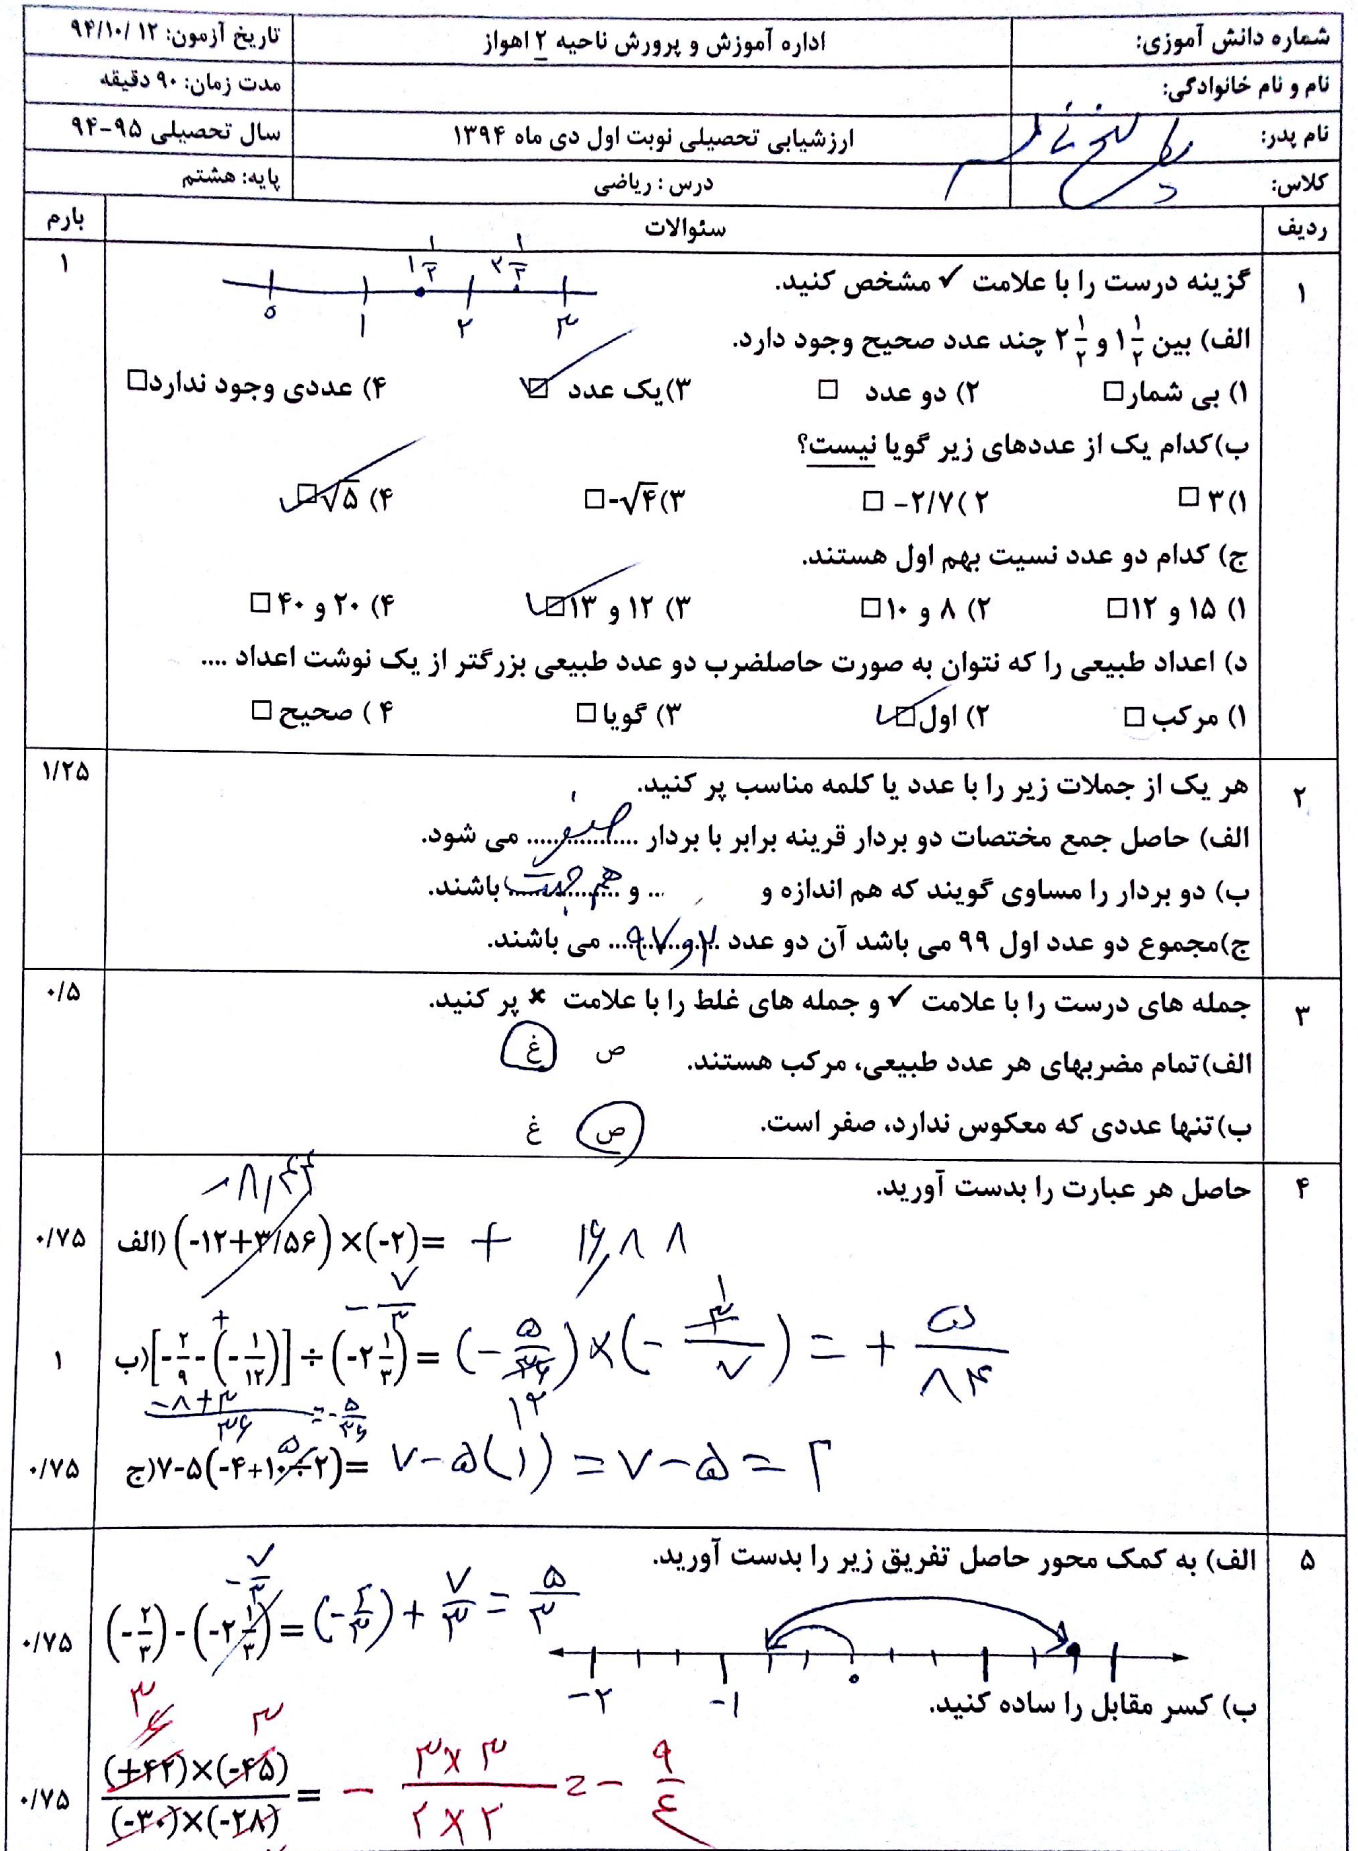 شماره دانش آموزی:
اداره آموزش و پرورش ناحیه ۲ اهواز
تاریخ آزمون: ۹۴/۱۰/۱۲
نام و نام خانوادگی:
مدت زمان: ۹۰ دقیقه
نام پدر:
ارزشیابی تحصیلی نوبت اول دی ماه ۱۳۹۴
سال تحصیلی ۹۵-۹۴
کلاس:
درس : ریاضی
پایه: هشتم
ردیف سئوالات بارم
۱ گزینه درست را با علامت ✓ مشخص کنید. ۱
۱ ۱/۲ ۲ ۱/۲
۰ ۱ ۲ ۳
الف) بین ۱ ۱/۲ و ۲ ۱/۲ چند عدد صحیح وجود دارد.
۱) بی شمار□ ۲) دو عدد □ ۳)یک عدد ☑ ۴) عددی وجود ندارد□
ب)کدام یک از عددهای زیر گویا نیست؟
۱)۳ □ ۲)۲/۷- □ ۳)-√۴ □ ۴) √۵ ☑
ج) کدام دو عدد نسیت بهم اول هستند.
۱) ۱۵ و ۱۲□ ۲) ۸ و ۱۰□ ۳) ۱۲ و ۱۳☑ ۴) ۲۰ و ۴۰□
د) اعداد طبیعی را که نتوان به صورت حاصلضرب دو عدد طبیعی بزرگتر از یک نوشت اعداد ....
۱) مرکب□ ۲) اول☑ ۳) گویا□ ۴ ) صحیح□
۲ هر یک از جملات زیر را با عدد یا کلمه مناسب پر کنید. ۱/۲۵
الف) حاصل جمع مختصات دو بردار قرینه برابر با بردار صفر می شود.
ب) دو بردار را مساوی گویند که هم اندازه و ... و هم جهت باشند.
ج)مجموع دو عدد اول ۹۹ می باشد آن دو عدد ۲ و ۹۷ می باشند.
۳ جمله های درست را با علامت ✓ و جمله های غلط را با علامت ✖ پر کنید. ۰/۵
الف)تمام مضربهای هر عدد طبیعی، مرکب هستند. ص غ
ب)تنها عددی که معکوس ندارد، صفر است. ص غ
۴ حاصل هر عبارت را بدست آورید.
-۸,۴۴
الف) (-۱۲+۳/۵۶)×(-۲)= + ۱۶,۸۸ ۰/۷۵
+ -۷/۳
ب) [-۲/۹-(-۱/۱۲)]÷(-۲ ۱/۳)= (-۵/۳۶)×(-۳/۷) = + ۵/۸۴ ۱
۱ ۱۲
(-۸+۳)/۳۶ = -۵/۳۶
۵
ج) ۷-۵(-۴+۱۰÷۲)= ۷-۵(۱) = ۷-۵ = ۲ ۰/۷۵
۵ الف) به کمک محور حاصل تفریق زیر را بدست آورید.
-۷/۳
(-۲/۳)-(-۲ ۱/۳)= (-۲/۳)+ ۷/۳ = ۵/۳ ۰/۷۵
-۲ -۱ ۰
ب) کسر مقابل را ساده کنید.
۳ ۶ ۳
(+۴۲)×(-۴۵)/(-۳۰)×(-۲۸) = - ۳×۳/۲×۲ = - ۹/۴ ۰/۷۵